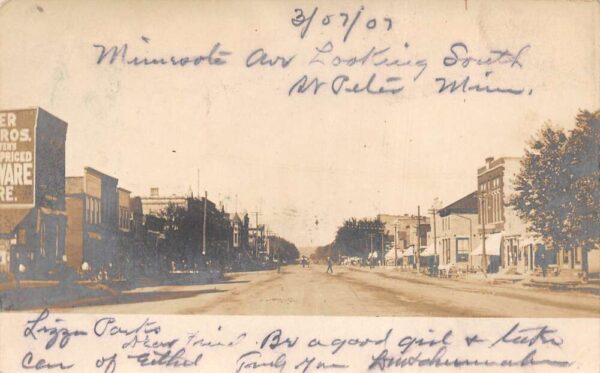 3/07/07
Minnesota Ave Looking South
St Peter Minn.
ER
ROS.
PRICED
WARE
RE.
Lizzie Parks
Dear Friend. Be a good girl & take
Car of Ethel Truly Yours